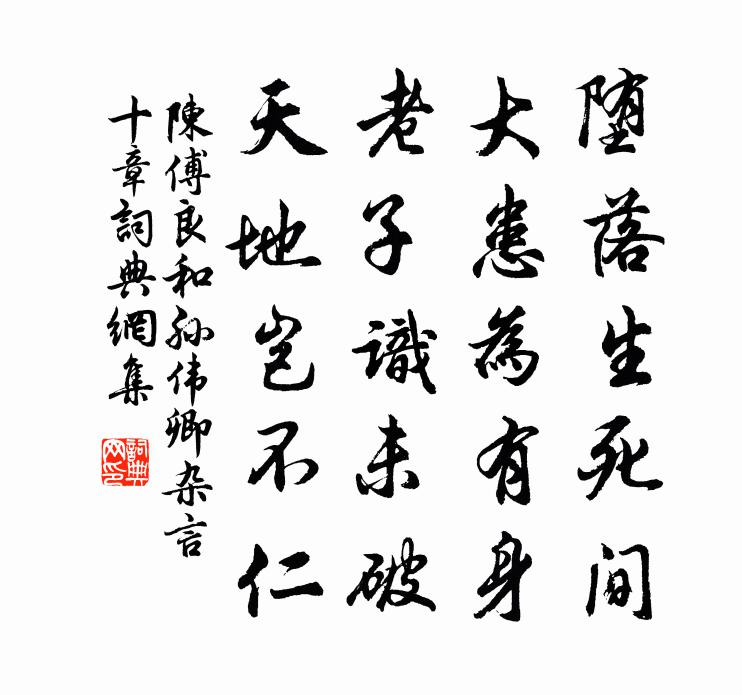 堕落生死间
大患為有身
老子識未破
天地岂不仁
陳傅良和孙伟卿杂言
十章詞典網集
詞典
网印